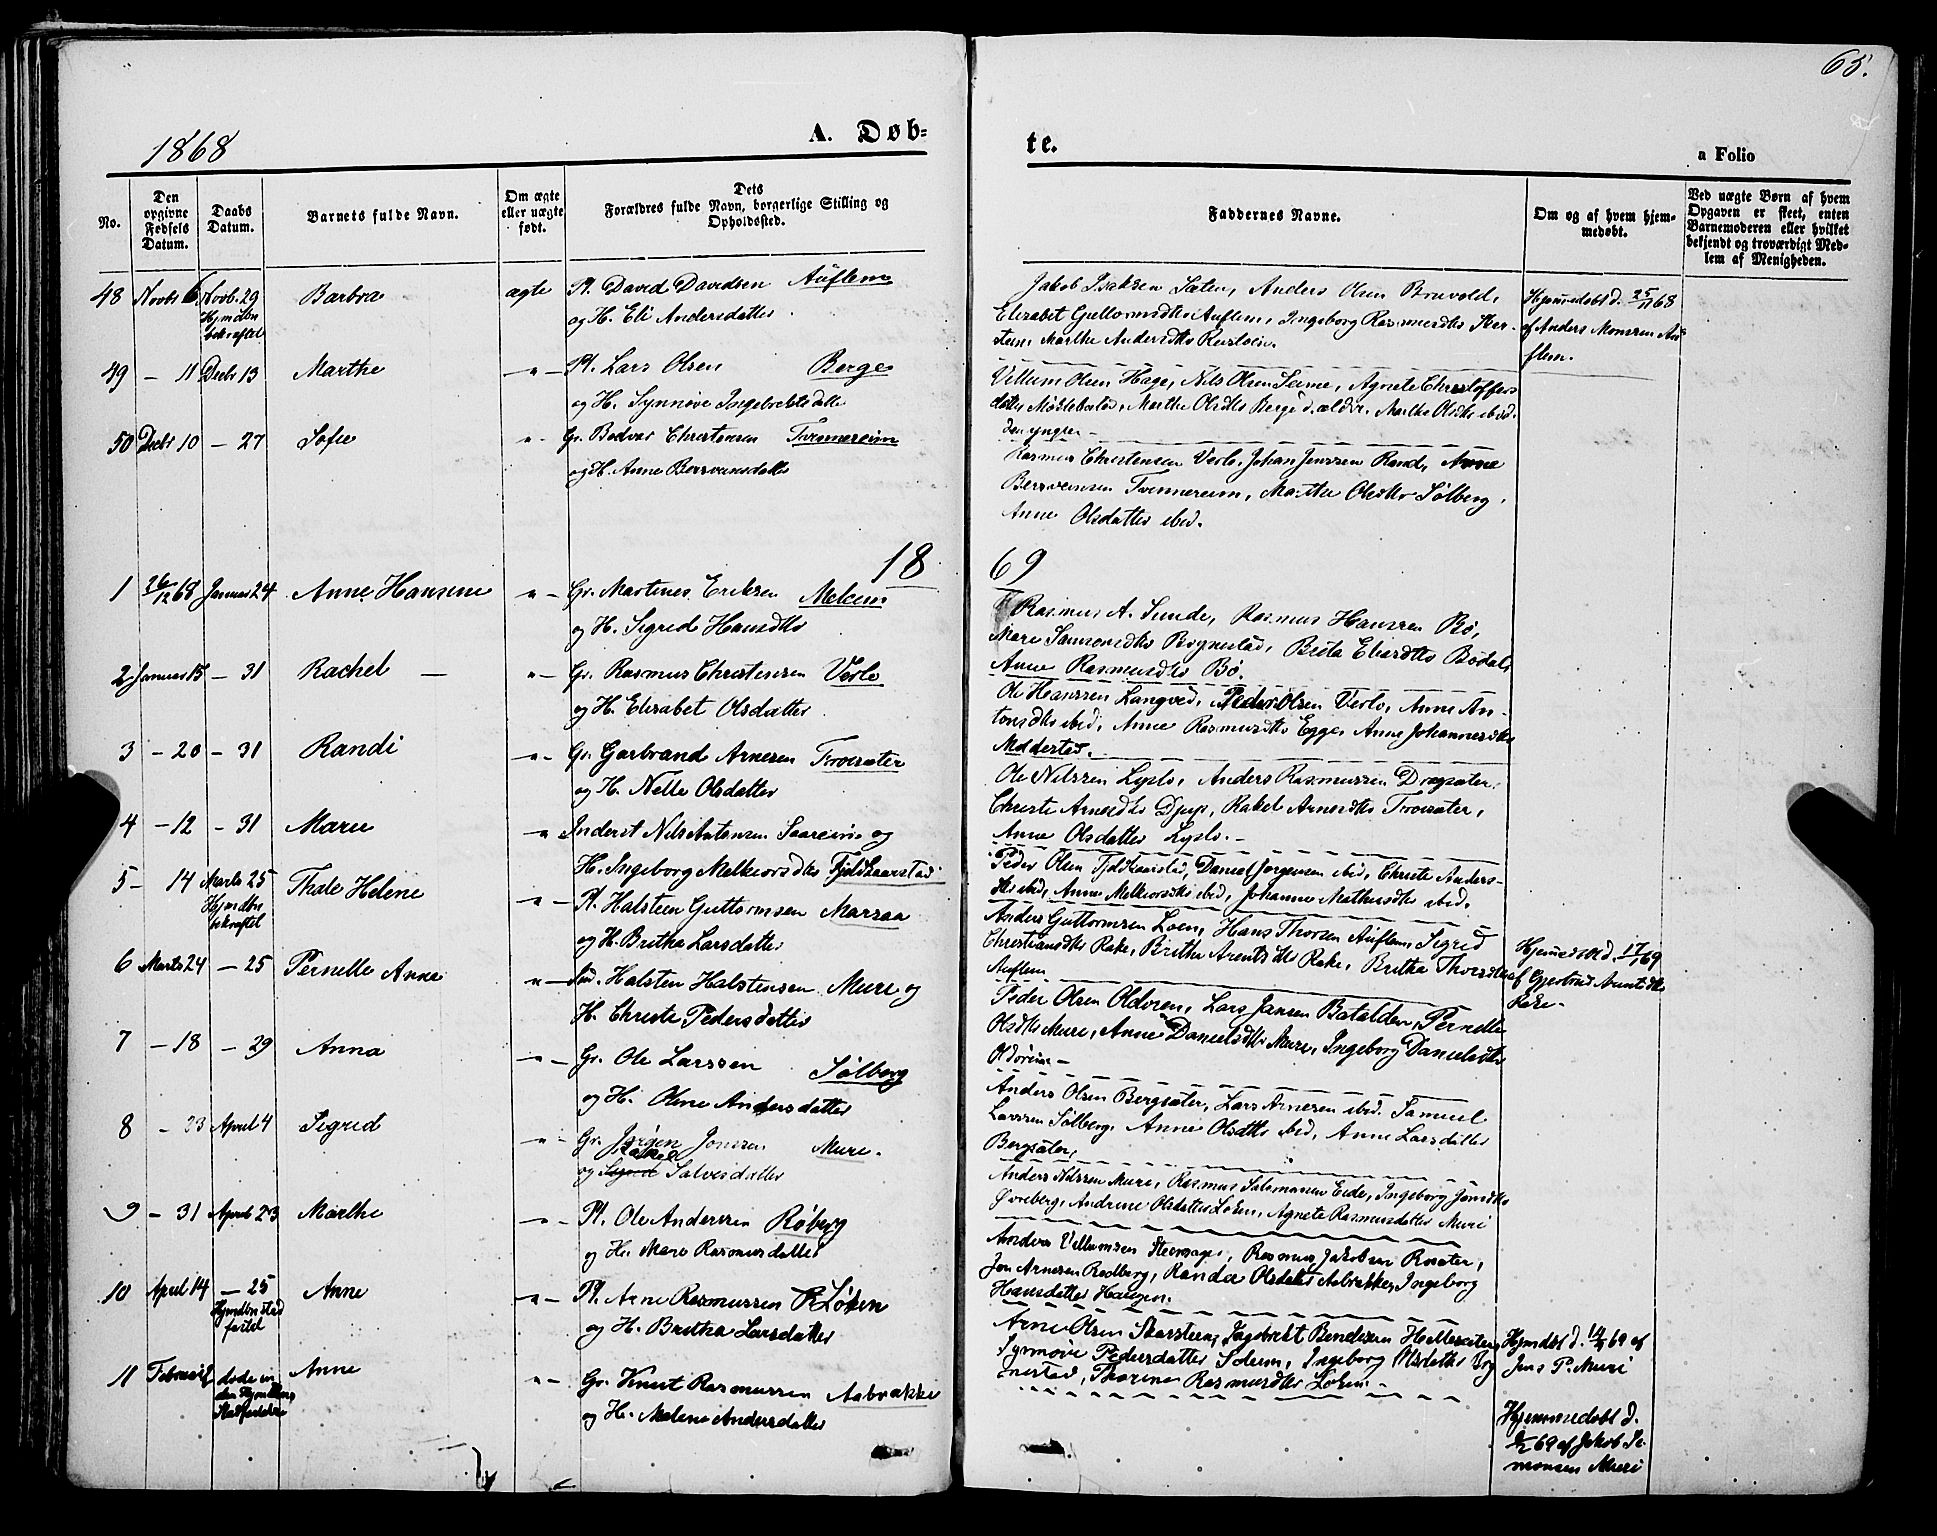 65.
1868
A. Døb=
te.
a Folio
No.
Den opgivne Fødsels Datum.
Daabs Datum.
Barnets fulde Navn.
Om ægte eller uægte født.
Dets Forældres fulde Navn, borgerlige Stilling og Opholdssted.
Faddernes Navne.
Om og af hvem hjemmedøbt.
Ved uægte Børn af hvem Opgaven er skeet, enten Barnemoderen eller hvilket bekjendt og troværdigt Medlem af Menigheden.
48 Novbr 6 Novb. 29 Barbra ægte Pl. David Davidsen Auflem
Hjmdbn bekræftet og H. Eli Andersdatter
Jakob Isaksen Sæten, Anders Olsen Bruvold,
Elisabet Guttormsdtr Auflem, Ingeborg Rasmusdtr
Marthe Andersdtr
Hjemmedøbt d. 25/11 68
af Anders Monsen Auflem.
49 — 11 Decbr 13 Marthe —"— Pl. Lars Olsen Berge
og H. Synnøve Ingebrektsdatter
Villum Olsen Hage, Nils Olsen Seime, Agnete Christoffersdatter
Marthe Olsdtr Berge d. ældre. Marthe Olsdtr ibid.
den yngre —
50 Decbr 10 — 27 Sofie "— Gr. Bødvar Christensen Tvennereim
og H. Anne Berrvensdatter
Rasmus Christensen Verlo, Johan Jenssen Rand, Anne
Berrvensen Tvennereim, Marthe Olsdtr Sølberg,
Anne Olsdatter ibid.
18
69
1 26/12 68 Januar 24 Anne Hansine —"— Gr. Martinus Eriksen Melem
og H. Sigrid Hansdtr
Rasmus A. Sunde, Rasmus Hanssen Bø,
Mari Samsonsdtr Rognestad, Brita Eliasdtr Bødal,
Anne Rasmusdtr Bø.
2 Januar 15 — 31 Rachel — "— Gr. Rasmus Christensen Verlo
og H. Elisabet Olsdatter
Ole Hanssen Langved, Peder Olsen Verlo, Anne Antonsdtr
ibid, Anne Rasmusdtr Egge, Anne Johannesdtr
Meldestad.
3 — 20 — 31 Randi —"— Gr. Garbrand Arnesen Tvoisæter
og H. Nelle Olsdatter
Ole Nilssen Lyslo, Anders Rasmussen Dragsæter,
Christe Arnesdtr Djup, Rakel Arnesdtr Tvoisæter,
Anne Olsdatter Lyslo. —
4 — 12 — 31 Marie —"— Inderst Nils Antonsen Saareim og
H. Ingeborg Melkiorsdtr Fjeldkaarstad
Peder Olsen Fjeldkaarstad, Daniel Jørgensen ibid, Christe Andersdtr
ibid, Anne Melkiorsdtr ibid, Johanne Mathiasdtr ibid.
5 — 14 Marts 25 Thale Helene —"— Pl. Halsteen Guttormsen Marsaa
Hjmdbn bekræftet og H. Britha Larsdatter
Anders Guttormsen Loen, Hans Thorsen Auflem, Sigrid
Christiansdtr Rake, Brithe Arentsdtr Rake, Britha Thorsdtr
Auflem
Hjemmedøbt d. 17/1 69
af Gjertrud Arentsdtr
Rake —
6 Marts 24 — 25 Pernelle Anne "— Ind. Halsten Halstensen Muri og
H. Christe Pedersdatter
Peder Olsen Oldoren, Lars Jansen Batalden, Pernelle
Olsdtr Muri, Anne Danielsdtr Muri, Ingeborg Danielsdtr
Oldøren —
7 — 18 — 29 Anna —"— Gr. Ole Larssen Sølberg
og H. Oline Andersdatter
Anders Olsen Bergsæter, Lars Arnesen ibid. Samuel
Larssen Sølberg, Anne Olsdtr ibid, Anne Larsdatter
Bergsæter,
8 — 23 April 4 Sigrid "— Gr. Jørgen Jonssen Muri.
og Rakel Salvesdatter
Anders Nilssen Muri, Rasmus Salomonsen Eide, Ingeborg Jonsdtr
Øvreberg, Andrine Olsdatter Loken, Agnete Rasmusdatter Muri
9 — 31 April 23 Marthe —"— Pl. Ole Anderssen Røberg
og H. Mari Rasmusdatter
Anders Villumsen Rasmus Jakobsen
Jon Arnesen Rødberg, Randi Olsdatter Aabrække, Ingeborg
Hansdatter Haugen.
10 April 14 — 25 Anne —"— Pl. Arne Rasmussen Løken
Hjmdbn stadfæstet og H. Britha Larsdatter
Arne Olsen Skarstein, Ingebrikt Bendixen
Synnøve Pedersdatter Solem, Ingeborg Olsdatter
Thorine Rasmusdtr Loken —
Hjmdbt d. 14/4 69 af
Jens P. Muri
11 Februar 2 døde inden Hjmdbns Stadfæstelse Anne "— Gr. Knut Rasmussen Aabrække
og H. Malene Andersdatter
Hjemmedøbt d.
2/2 69 af Jakob Simonsen
Muri